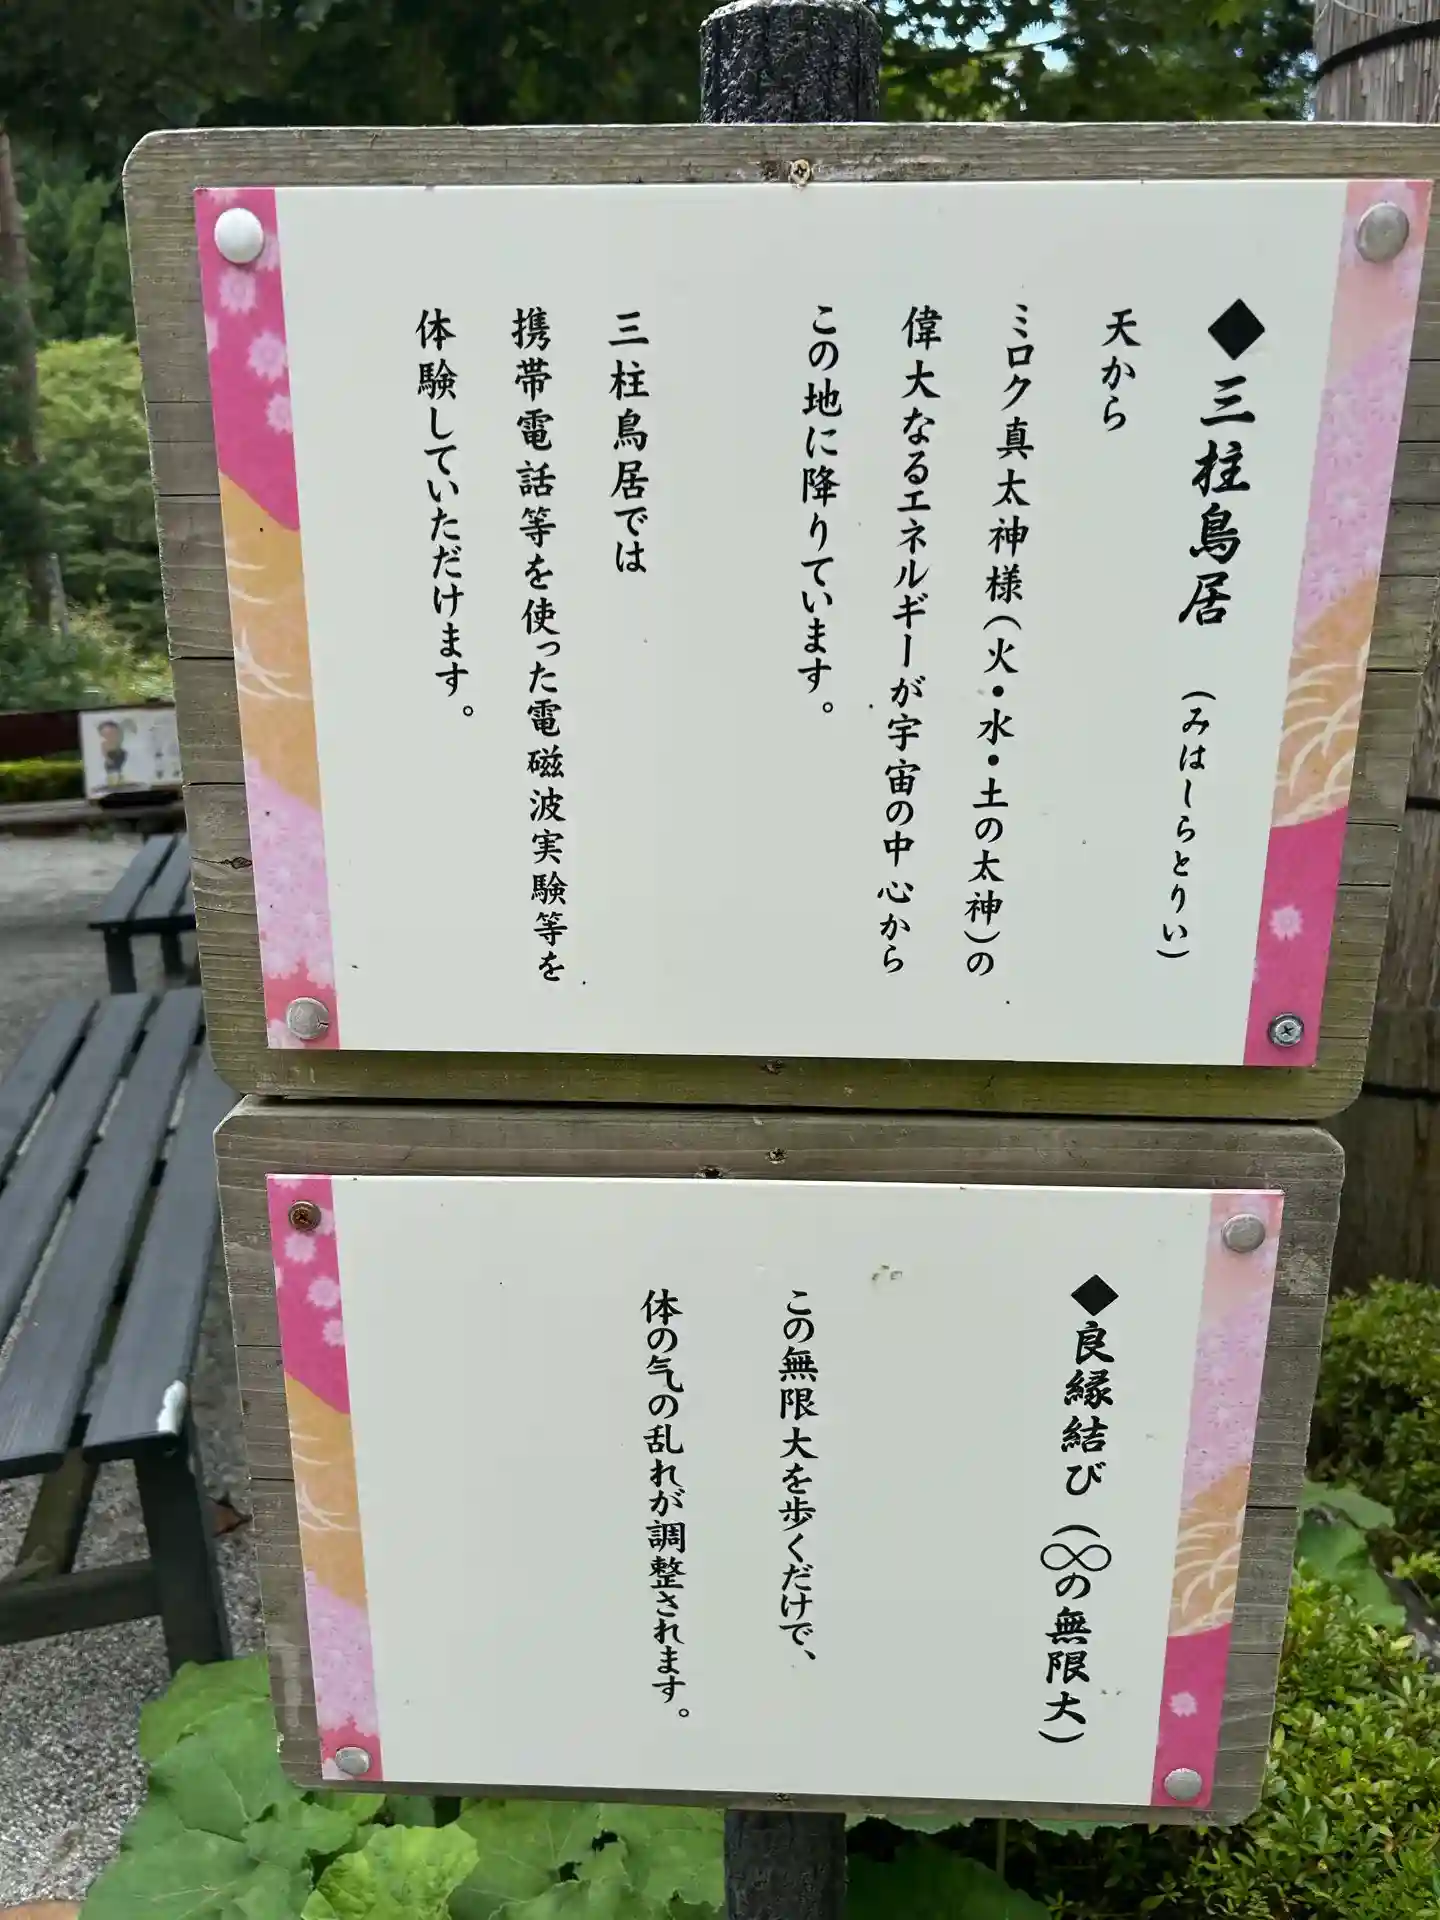 ◆三柱鳥居 (みはしらとりい)
天から
ミロク真太神様(火・水・土の太神)の
偉大なるエネルギーが宇宙の中心から
この地に降りています。
三柱鳥居では
携帯電話等を使った電磁波実験等を
体験していただけます。
◆良縁結び (∞の無限大)
この無限大を歩くだけで、
体の気の乱れが調整されます。